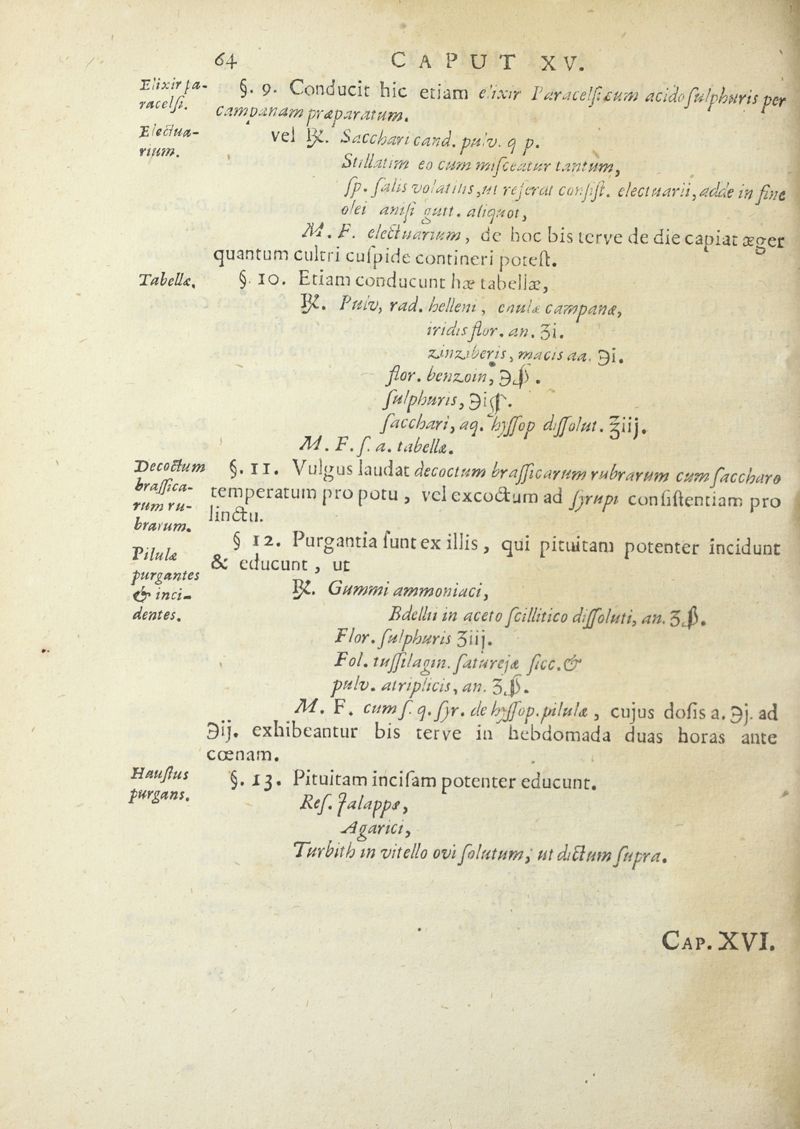 64 CAPUT XV.
Elixir pa-
racelſi.
§. 9. Conducit hic etiam elixir Paracelſicum acido ſulphuris per
campanam præparatum.
Electua-
rium.
vel ℞. Sacchari cand. pulv. q p.
Stillatim eo cum miſceatur tantum,
ſp. ſalis volatilis, ut referat conſiſt. electuarii, adde in fine
olei aniſi gutt. aliquot,
M. F. electuarium, de hoc bis terve de die capiat æger
quantum cultri cuſpide contineri poteſt.
Tabellæ,
§. 10. Etiam conducunt hæ tabellæ,
℞. Pulv, rad. helleni, enulæ campanæ,
iridis flor. an. ʒi.
zinziberis, macis aa. ℈i.
flor. benzoin, ℈ß.
ſulphuris, ℈iß.
ſacchari, aq. hyſſop diſſolut. ℥iij.
M. F. ſ. a. tabellæ.
Decoctum
braſſica-
rum ru-
brarum.
§. 11. Vulgus laudat decoctum braſſicarum rubrarum cum ſaccharo
temperatum pro potu, vel excoctum ad ſyrupi conſiſtentiam pro
linctu.
Pilulæ
purgantes
& inci-
dentes.
§ 12. Purgantia ſunt ex illis, qui pituitam potenter incidunt
& educunt, ut
℞. Gummi ammoniaci,
Bdellii in aceto ſcillitico diſſoluti, an. ʒß.
Flor. ſulphuris ʒiij.
Fol. tuſſilagin. ſaturejæ ſicc. &
pulv. atriplicis, an. ʒß.
M. F. cum ſ. q. ſyr. de hyſſop. pilulæ, cujus doſis a. ℈j. ad
℈ij. exhibeantur bis terve in hebdomada duas horas ante
cœnam.
Hauſtus
purgans.
§. 13. Pituitam inciſam potenter educunt.
Reſ. Jalappæ,
Agarici,
Turbith in vitello ovi ſolutum, ut dictum ſupra.
CAP. XVI.